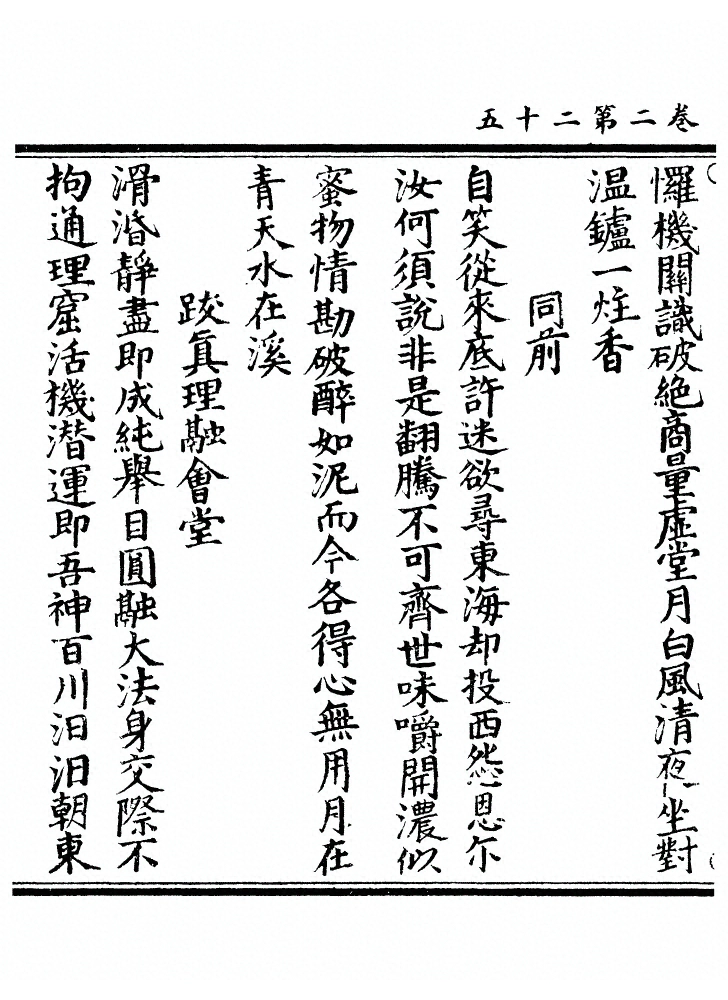 卷二第二十五
㦬機關識破絕商量虛堂月白風清夜坐對
温鑪一炷香
同前
自笑從來底許迷欲尋東海却投西怨恩尒
汝何須說非是翻騰不可齊世味嚼開濃似
蜜物情勘破醉如泥而今各得心無用月在
青天水在溪
跋眞理融會堂
滑湣靜盡即成純舉目圓融大法身交際不
拘通理窟活機潛運即吾神百川汩汩朝東